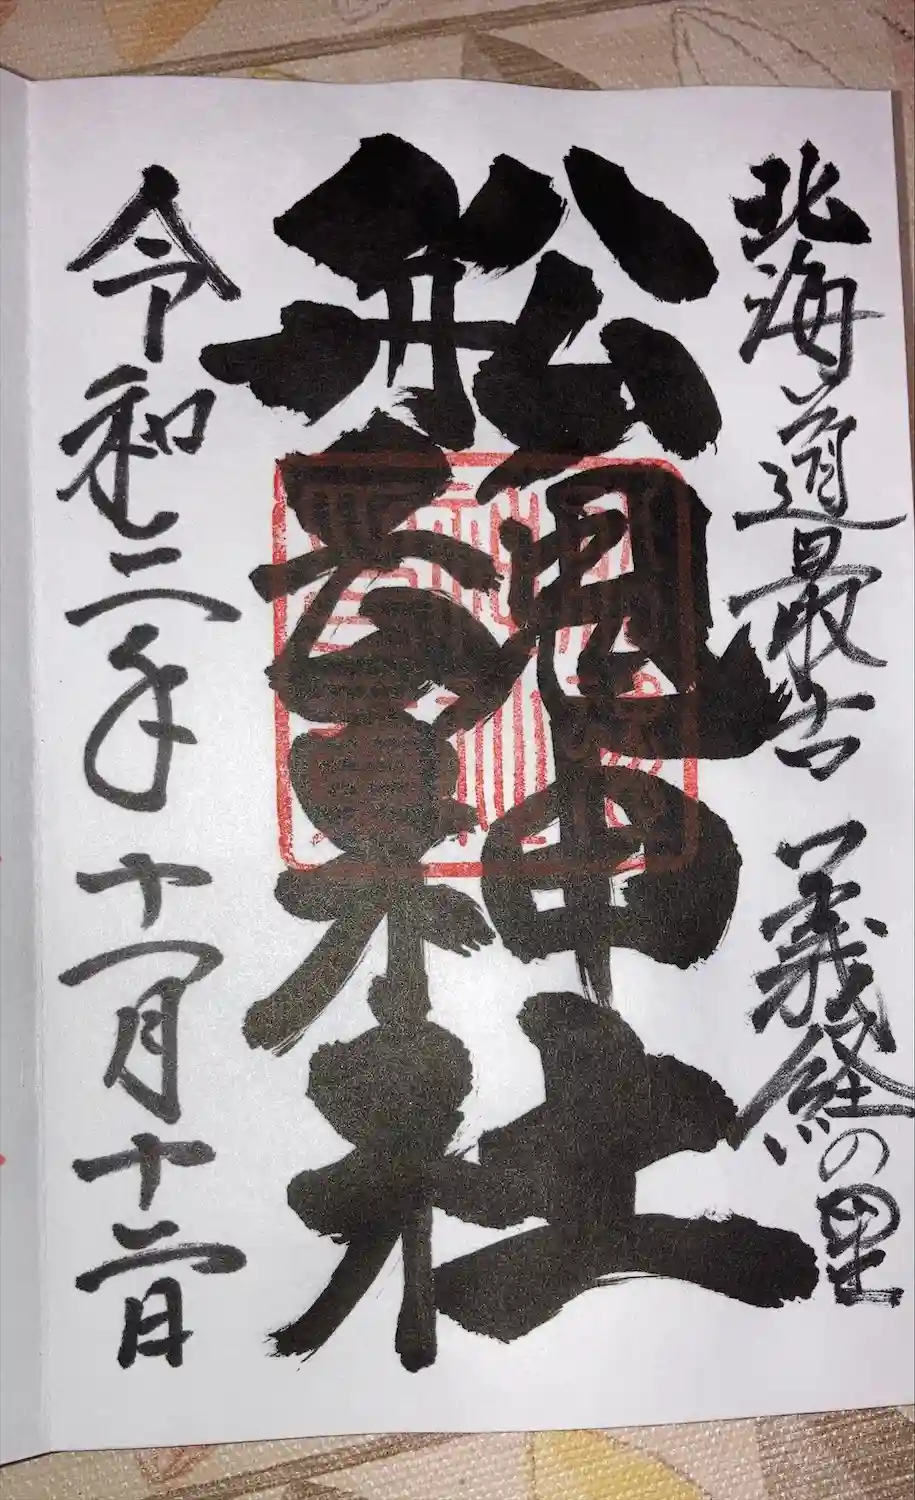 北海道最古 義経の里
舩魂神社
令和二年 十一月十二日